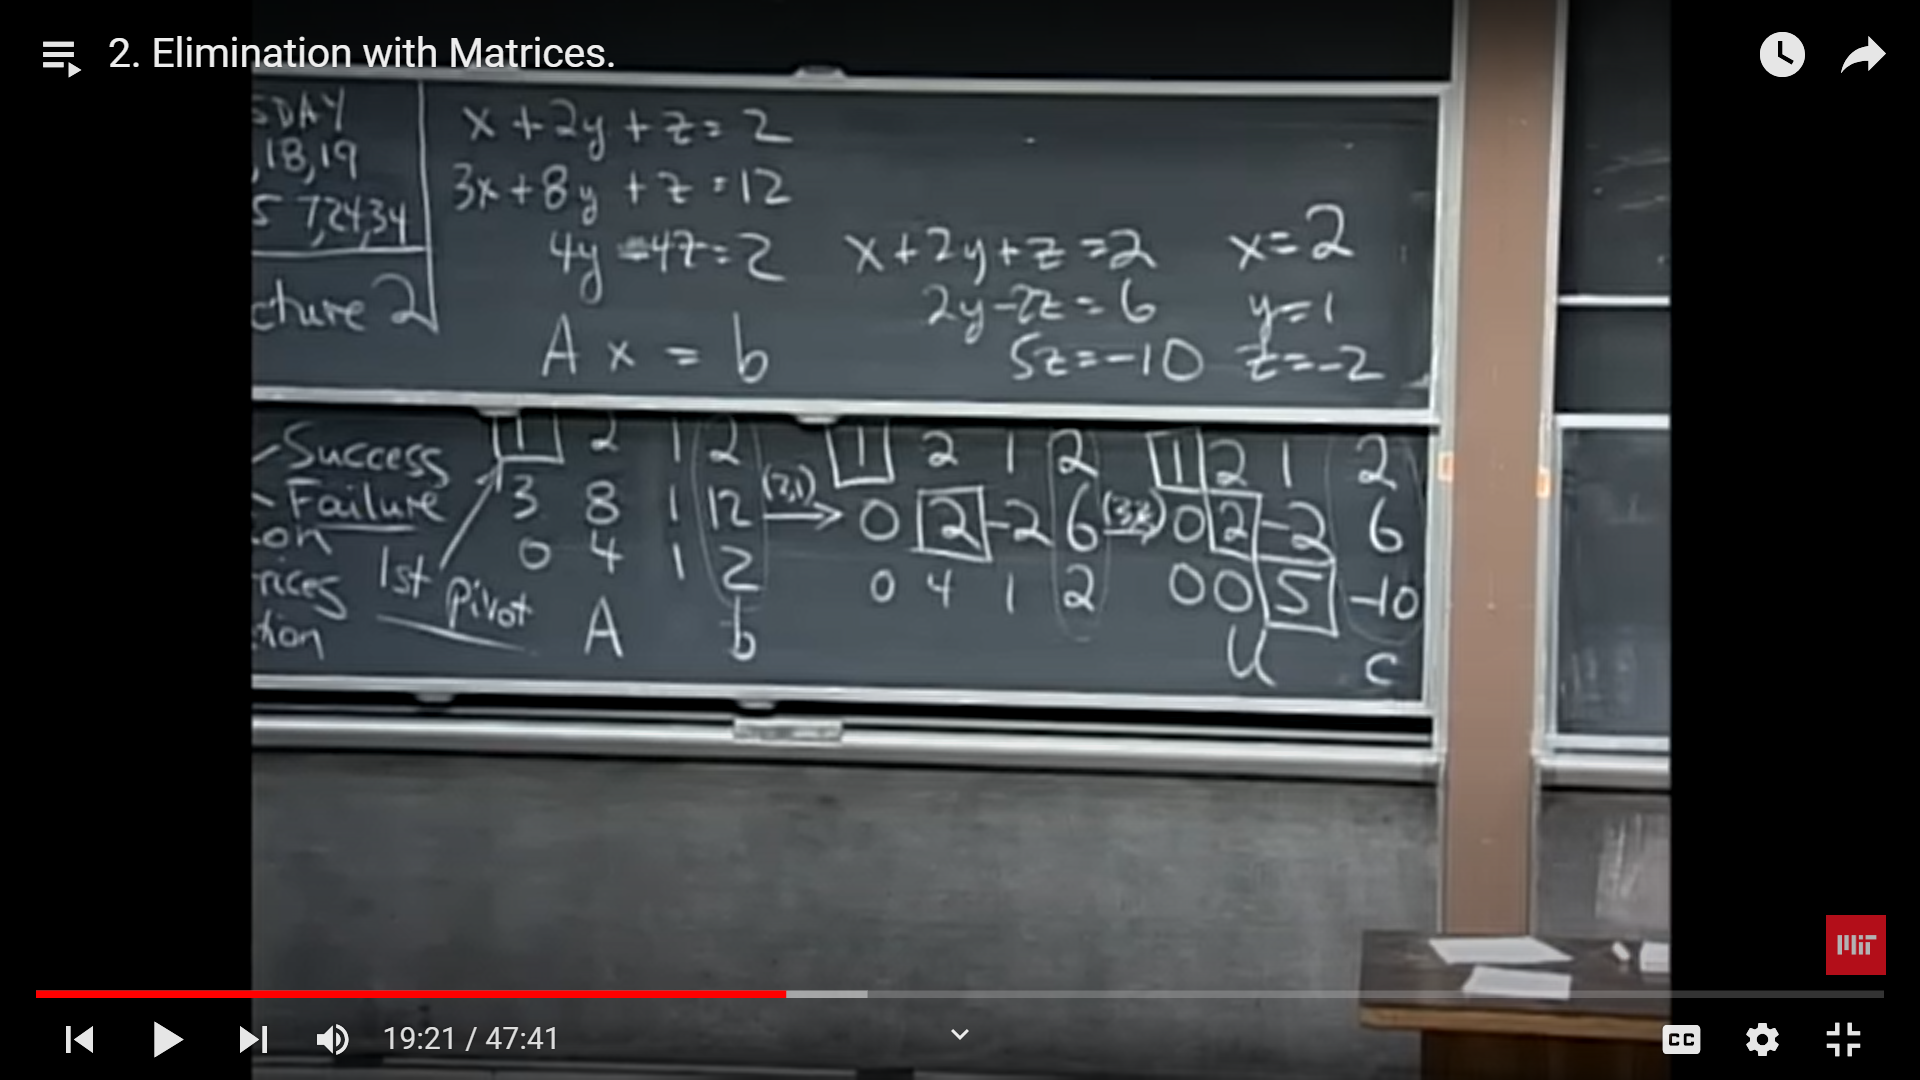 2. Elimination with Matrices.
SDAY
,18,19
5 7,24,34
cture 2
x + 2y + z = 2
3x + 8y + z = 12
4y = 2
A x = b
x + 2y + z = 2
2y - 2z = 6
5z = -10
x = 2
y = 1
z = -2
Success
Failure
on
rices
tion
1st pivot
1 2 1 2
3 8 1 12
0 4 1 2
A b
(2,1)
1 2 1 2
0 2 -2 6
0 4 1 2
1 2 1 2
0 2 -2 6
0 0 5 -10
U c
MIT
19:21 / 47:41
CC